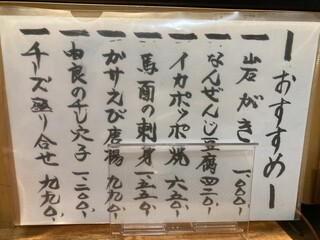 おすすめ
一 岩がき 一、〇〇〇、
一 なんぜんじ豆腐 四二〇、
一 イカポッポ焼 六五〇、
一 馬面の刺身 一、五五〇、
一 かサえび唐揚 九九〇、
一 由良の干し穴子 一、二〇〇、
一 チーズ盛り合せ 九九〇、